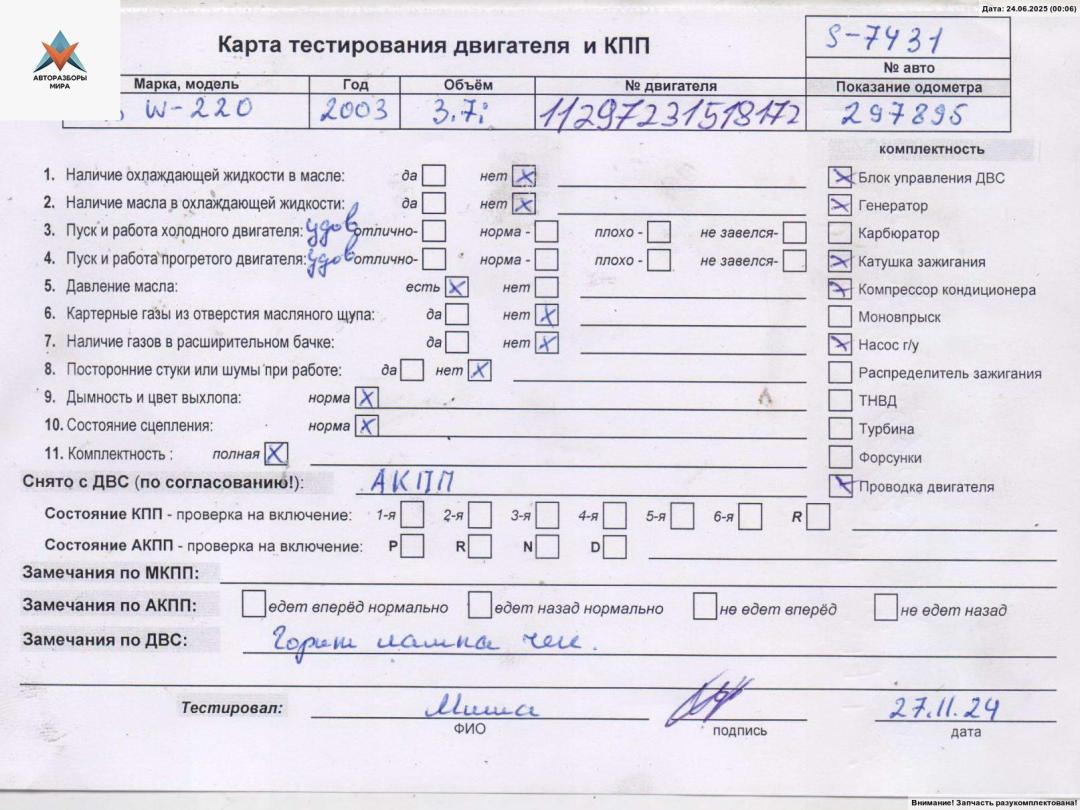 Дата: 24.06.2025 (00:06)
АВТОРАЗБОРЫ
МИРА
Карта тестирования двигателя и КПП
S-7431
№ авто
Марка, модель Год Объём № двигателя Показание одометра
W-220 2003 3.7i 11297231518172 297895
комплектность
1. Наличие охлаждающей жидкости в масле: да нет Блок управления ДВС
2. Наличие масла в охлаждающей жидкости: да нет Генератор
3. Пуск и работа холодного двигателя: удов отлично- норма - плохо - не завелся- Карбюратор
4. Пуск и работа прогретого двигателя: удов отлично- норма - плохо - не завелся- Катушка зажигания
5. Давление масла: есть нет Компрессор кондиционера
6. Картерные газы из отверстия масляного щупа: да нет Моновпрыск
7. Наличие газов в расширительном бачке: да нет Насос г/у
8. Посторонние стуки или шумы при работе: да нет Распределитель зажигания
9. Дымность и цвет выхлопа: норма ТНВД
10. Состояние сцепления: норма Турбина
11. Комплектность : полная Форсунки
Снято с ДВС (по согласованию!): АКПП Проводка двигателя
Состояние КПП - проверка на включение: 1-я 2-я 3-я 4-я 5-я 6-я R
Состояние АКПП - проверка на включение: P R N D
Замечания по МКПП:
Замечания по АКПП: едет вперёд нормально едет назад нормально не едет вперёд не едет назад
Замечания по ДВС: Горит лампа чек.
Тестировал: Миша 27.11.24
ФИО подпись дата
Внимание! Запчасть разукомплектована!